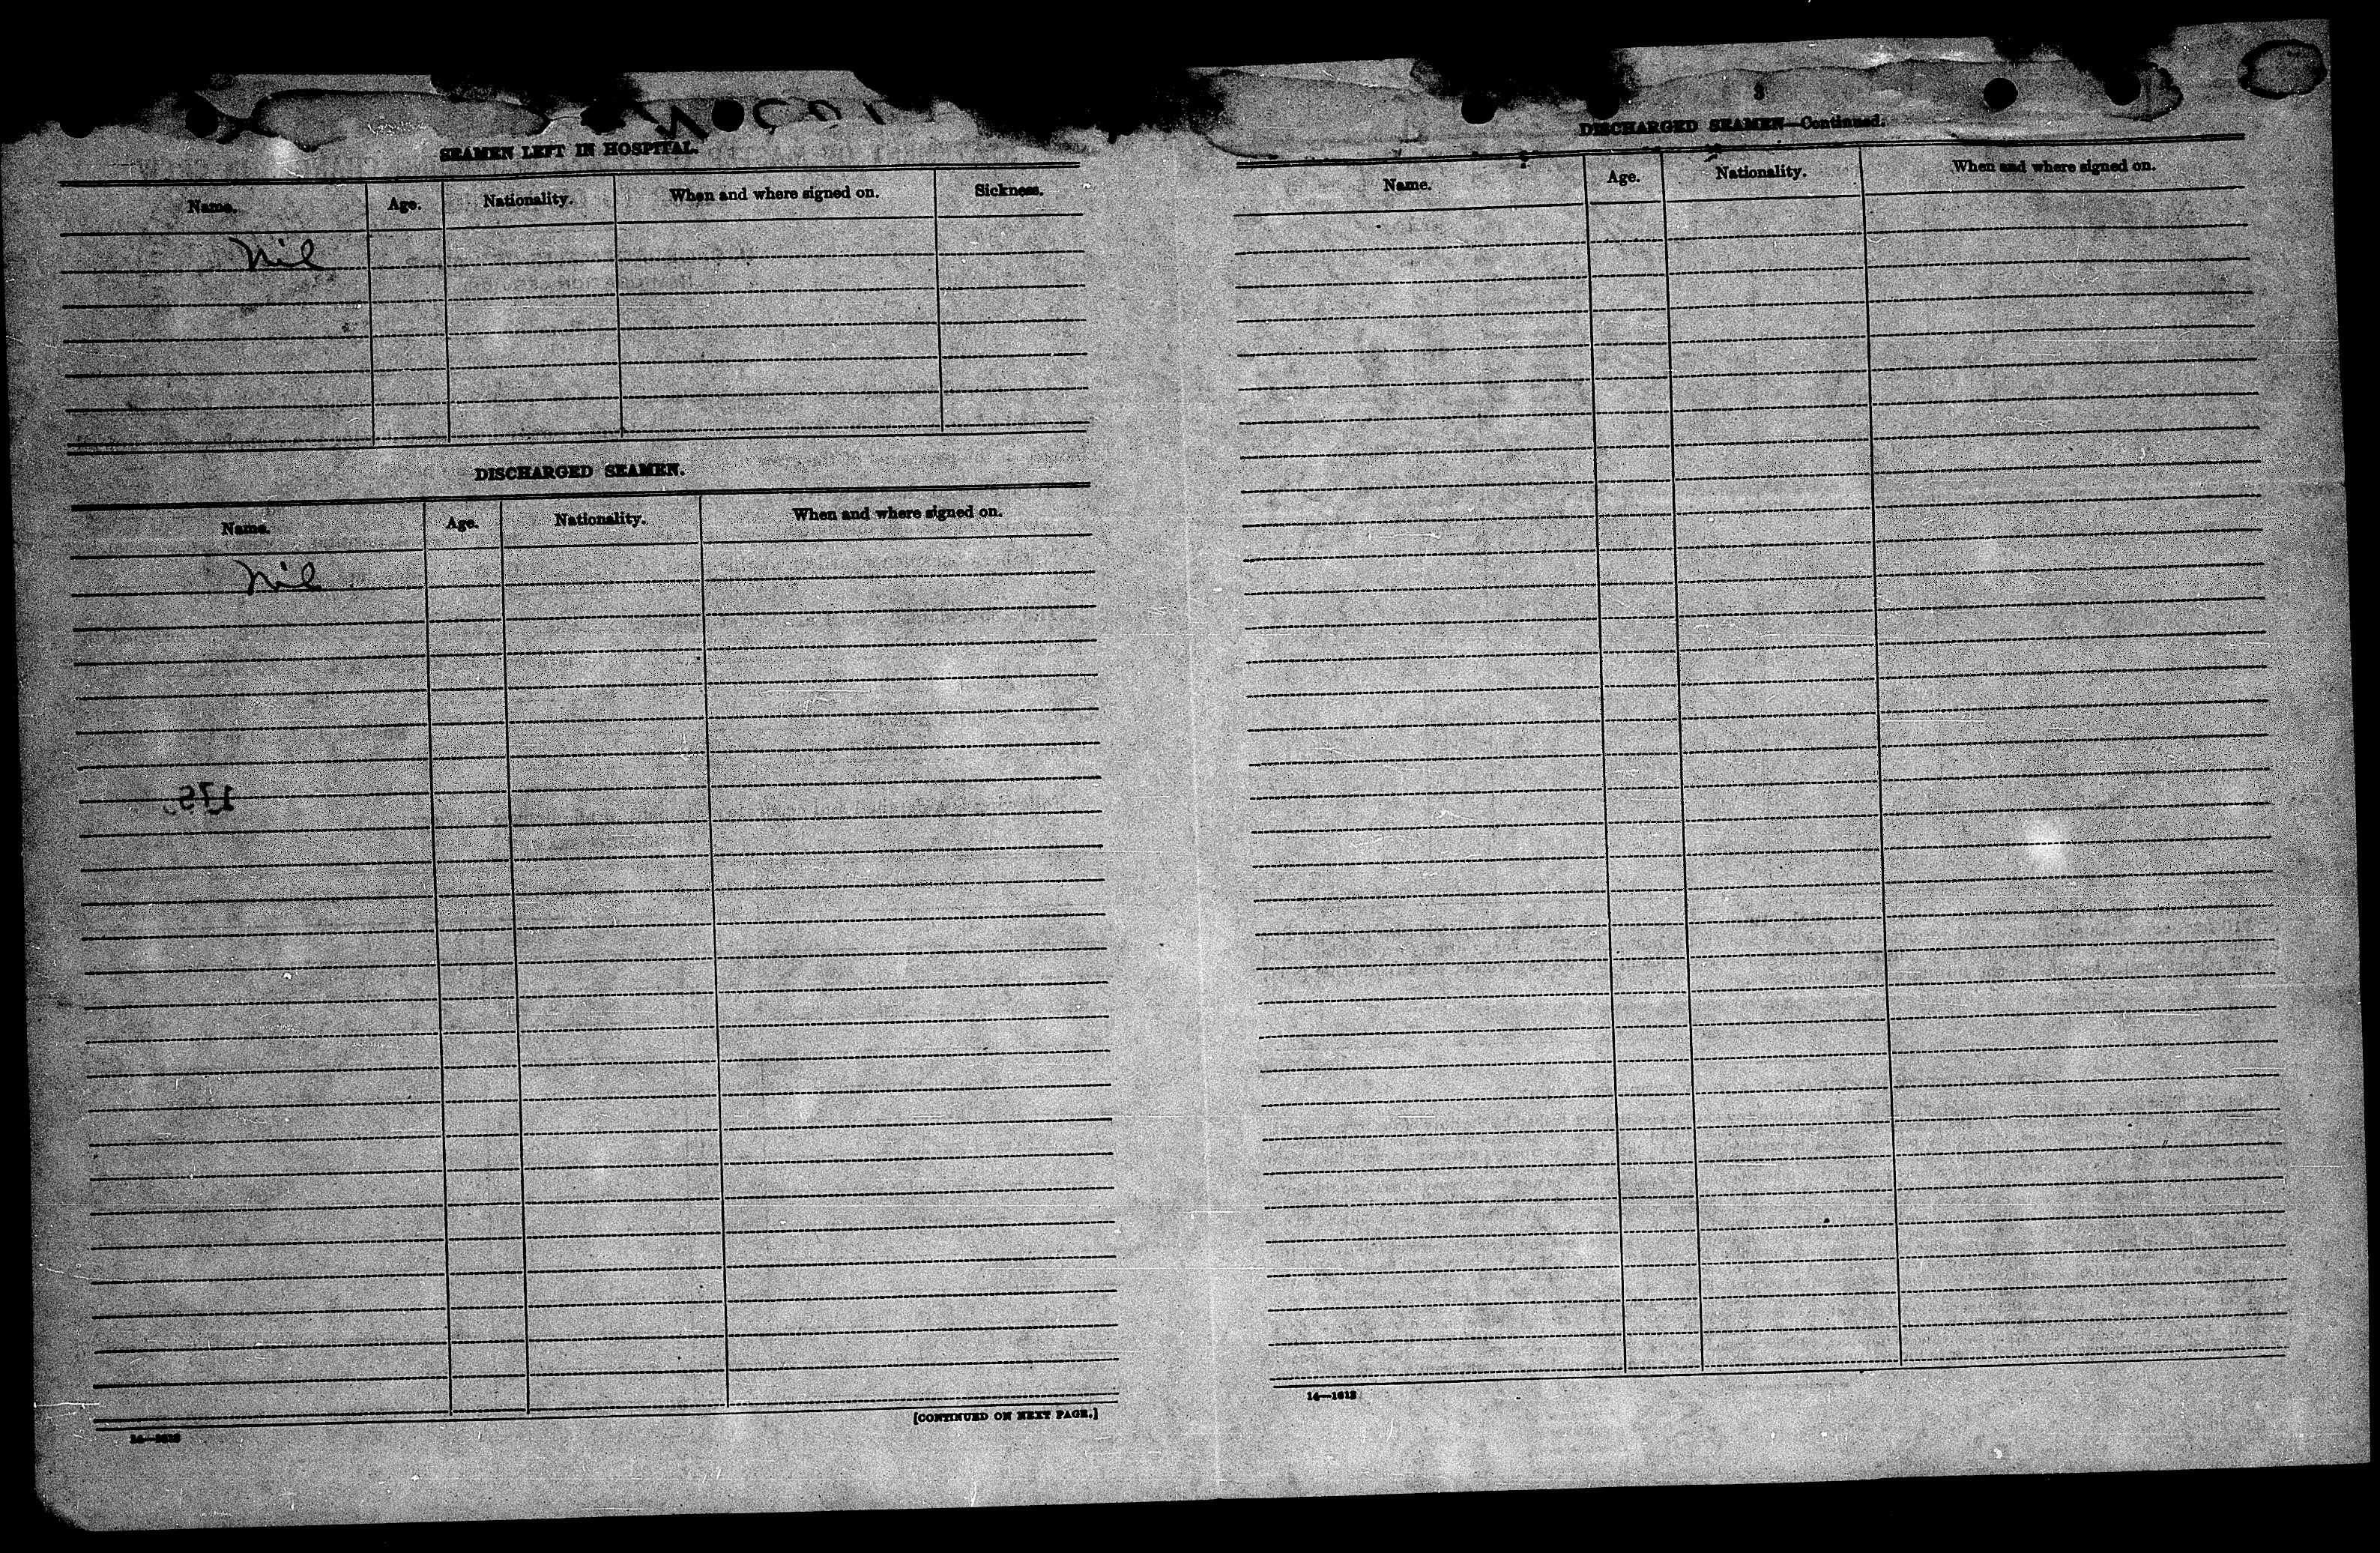 SEAMEN LEFT IN HOSPITAL.
Name. Age. Nationality. When and where signed on. Sickness.
Nil
DISCHARGED SEAMEN.
Name. Age. Nationality. When and where signed on.
Nil
175.
[CONTINUED ON NEXT PAGE.]
14—1612
3
DISCHARGED SEAMEN—Continued.
Name. Age. Nationality. When and where signed on.
14—1612